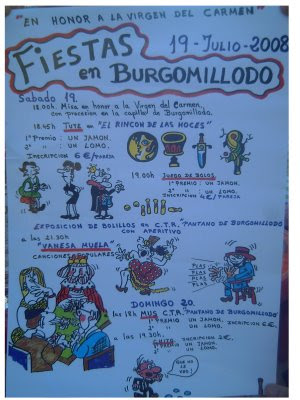 "EN HONOR A LA VIRGEN DEL CARMEN"
FIESTAS 19-JULIO-2008
en BURGOMILLODO
Sabado 19.
18.00h. Misa en honor a la Virgen del Carmen,
con procesion en la capital de Burgomillodo.
18.45h TUTE en "EL RINCON DE LAS HOCES"
1º PREMIO: UN JAMON.
2º " : UN LOMO.
INSCRIPCION 6 €/PAREJA
19.00h JUEGO DE BOLOS.
1º PREMIO: UN JAMON.
2º " : UN LOMO.
INSCRIPCION 4€/PAREJA
EXPOSICION DE BOLILLOS EN C.T.R. "PANTANO DE BURGOMILLODO"
CON APERITIVO
a las 21.30h
"VANESA MUELA"
CANCIONES POPULARES
PLAS
PLAS
PLAS
PLAS
DOMINGO 20.
a las 18h MUS C.T.R. "PANTANO DE BURGOMILLODO"
1º PREMIO UN JAMON. INSCRIPCION 6€.
2º " UN LOMO.
a las 19.30h.
INSCRIPCION 2€.
UN JAMON.
2º " UN LOMO.
QUE NO
LE VEO!